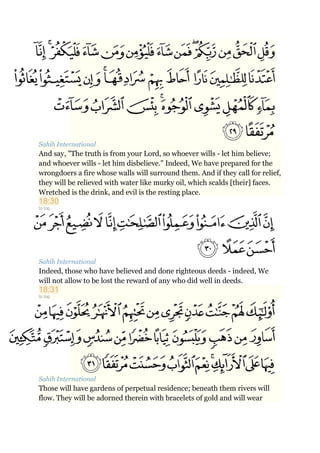 وَقُلِ ٱلْحَقُّ مِن رَّبِّكُمْ ۖ فَمَن شَآءَ فَلْيُؤْمِن وَمَن شَآءَ فَلْيَكْفُرْ ۚ إِنَّآ
أَعْتَدْنَا لِلظَّـٰلِمِينَ نَارًا أَحَاطَ بِهِمْ سُرَادِقُهَا ۚ وَإِن يَسْتَغِيثُوا۟ يُغَاثُوا۟
بِمَآءٍ كَٱلْمُهْلِ يَشْوِى ٱلْوُجُوهَ ۚ بِئْسَ ٱلشَّرَابُ وَسَآءَتْ
مُرْتَفَقًا ﴿٢٩﴾
Sahih International
And say, "The truth is from your Lord, so whoever wills - let him believe;
and whoever wills - let him disbelieve." Indeed, We have prepared for the
wrongdoers a fire whose walls will surround them. And if they call for relief,
they will be relieved with water like murky oil, which scalds [their] faces.
Wretched is the drink, and evil is the resting place.
18:30
to top
إِنَّ ٱلَّذِينَ ءَامَنُوا۟ وَعَمِلُوا۟ ٱلصَّـٰلِحَـٰتِ إِنَّا لَا نُضِيعُ أَجْرَ مَنْ
أَحْسَنَ عَمَلًا ﴿٣٠﴾
Sahih International
Indeed, those who have believed and done righteous deeds - indeed, We
will not allow to be lost the reward of any who did well in deeds.
18:31
to top
أُو۟لَـٰٓئِكَ لَهُمْ جَنَّـٰتُ عَدْنٍ تَجْرِى مِن تَحْتِهِمُ ٱلْأَنْهَـٰرُ يُحَلَّوْنَ فِيهَا مِنْ
أَسَاوِرَ مِن ذَهَبٍ وَيَلْبَسُونَ ثِيَابًا خُضْرًا مِّن سُندُسٍ وَإِسْتَبْرَقٍ مُّتَّكِـِٔينَ
فِيهَا عَلَى ٱلْأَرَآئِكِ ۚ نِعْمَ ٱلثَّوَابُ وَحَسُنَتْ مُرْتَفَقًا ﴿٣١﴾
Sahih International
Those will have gardens of perpetual residence; beneath them rivers will
flow. They will be adorned therein with bracelets of gold and will wear